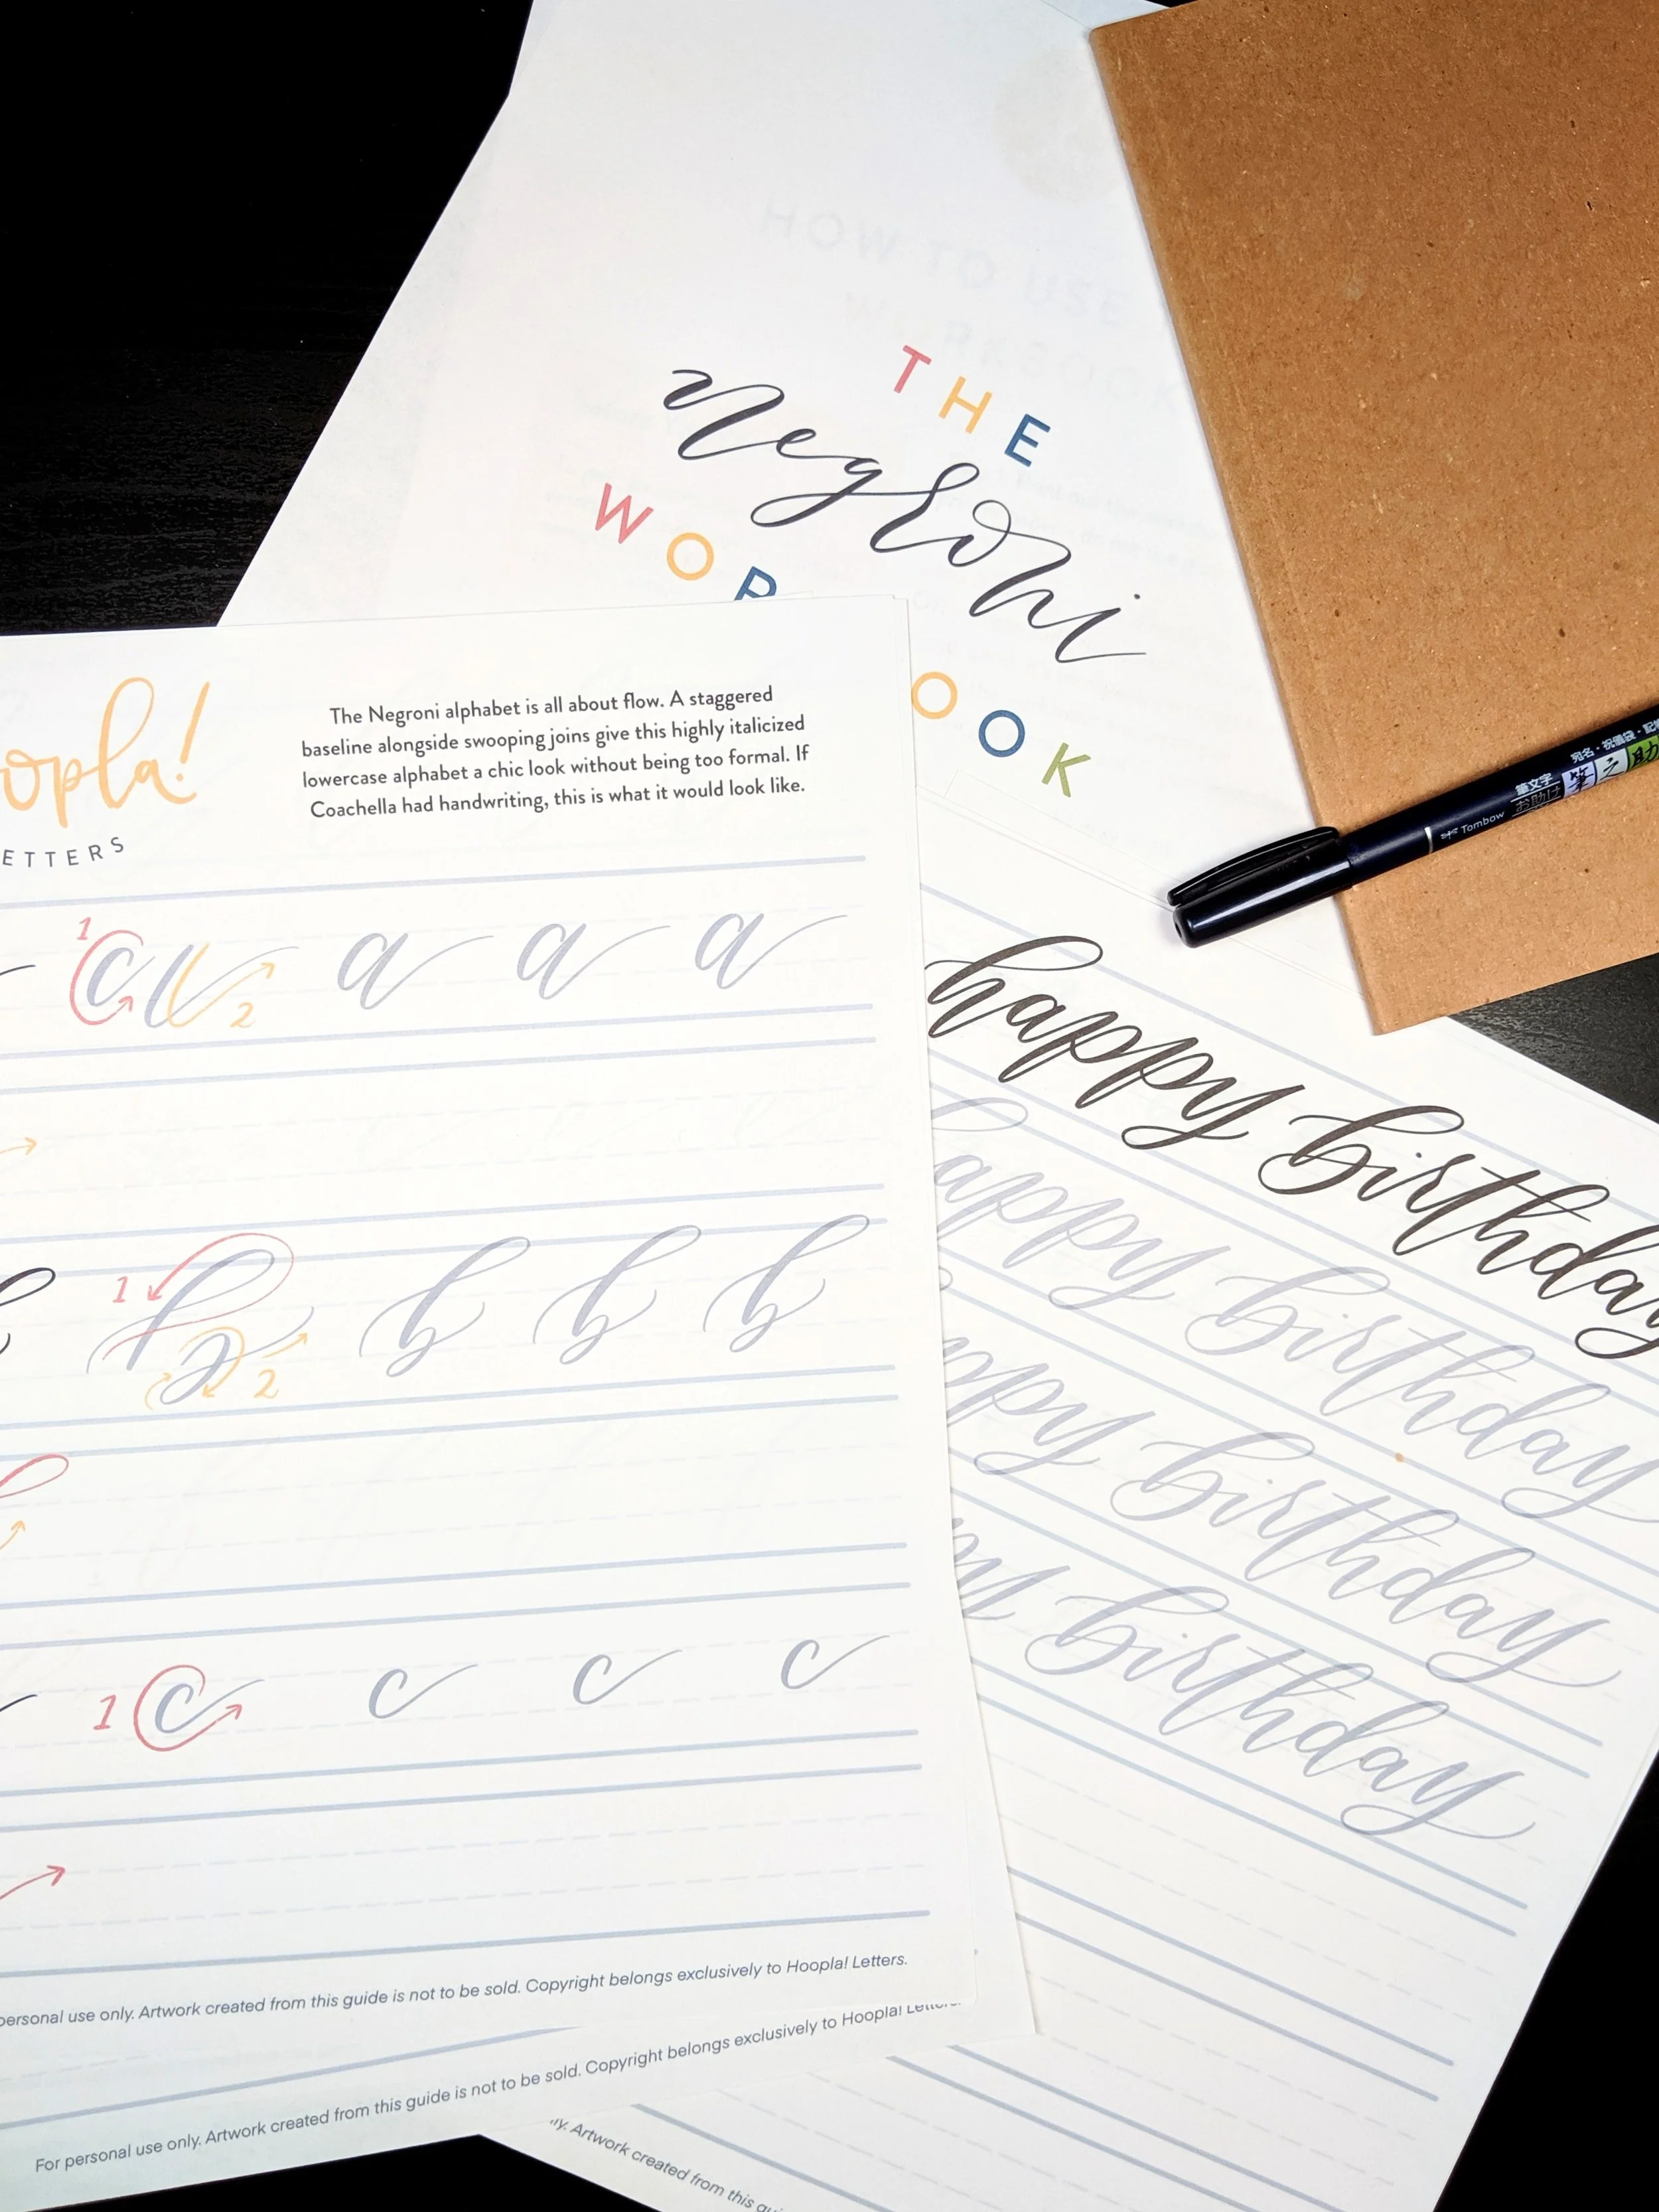 HOW TO USE
THE
negroni
WOR
OOK
opla!
ETTERS
The Negroni alphabet is all about flow. A staggered
baseline alongside swooping joins give this highly italicized
lowercase alphabet a chic look without being too formal. If
Coachella had handwriting, this is what it would look like.
1 a 2 a a a
1 b 2 b b b
1 c c c c
personal use only. Artwork created from this guide is not to be sold. Copyright belongs exclusively to Hoopla! Letters.
For personal use only. Artwork created from this guide is not to be sold. Copyright belongs exclusively to Hoopla! Letters.
ly. Artwork created from this gui
happy birthday
happy birthday
ppy birthday
py birthday
Tombow
筆文字
お助け
筆之助
宛名・祝儀袋・記帳